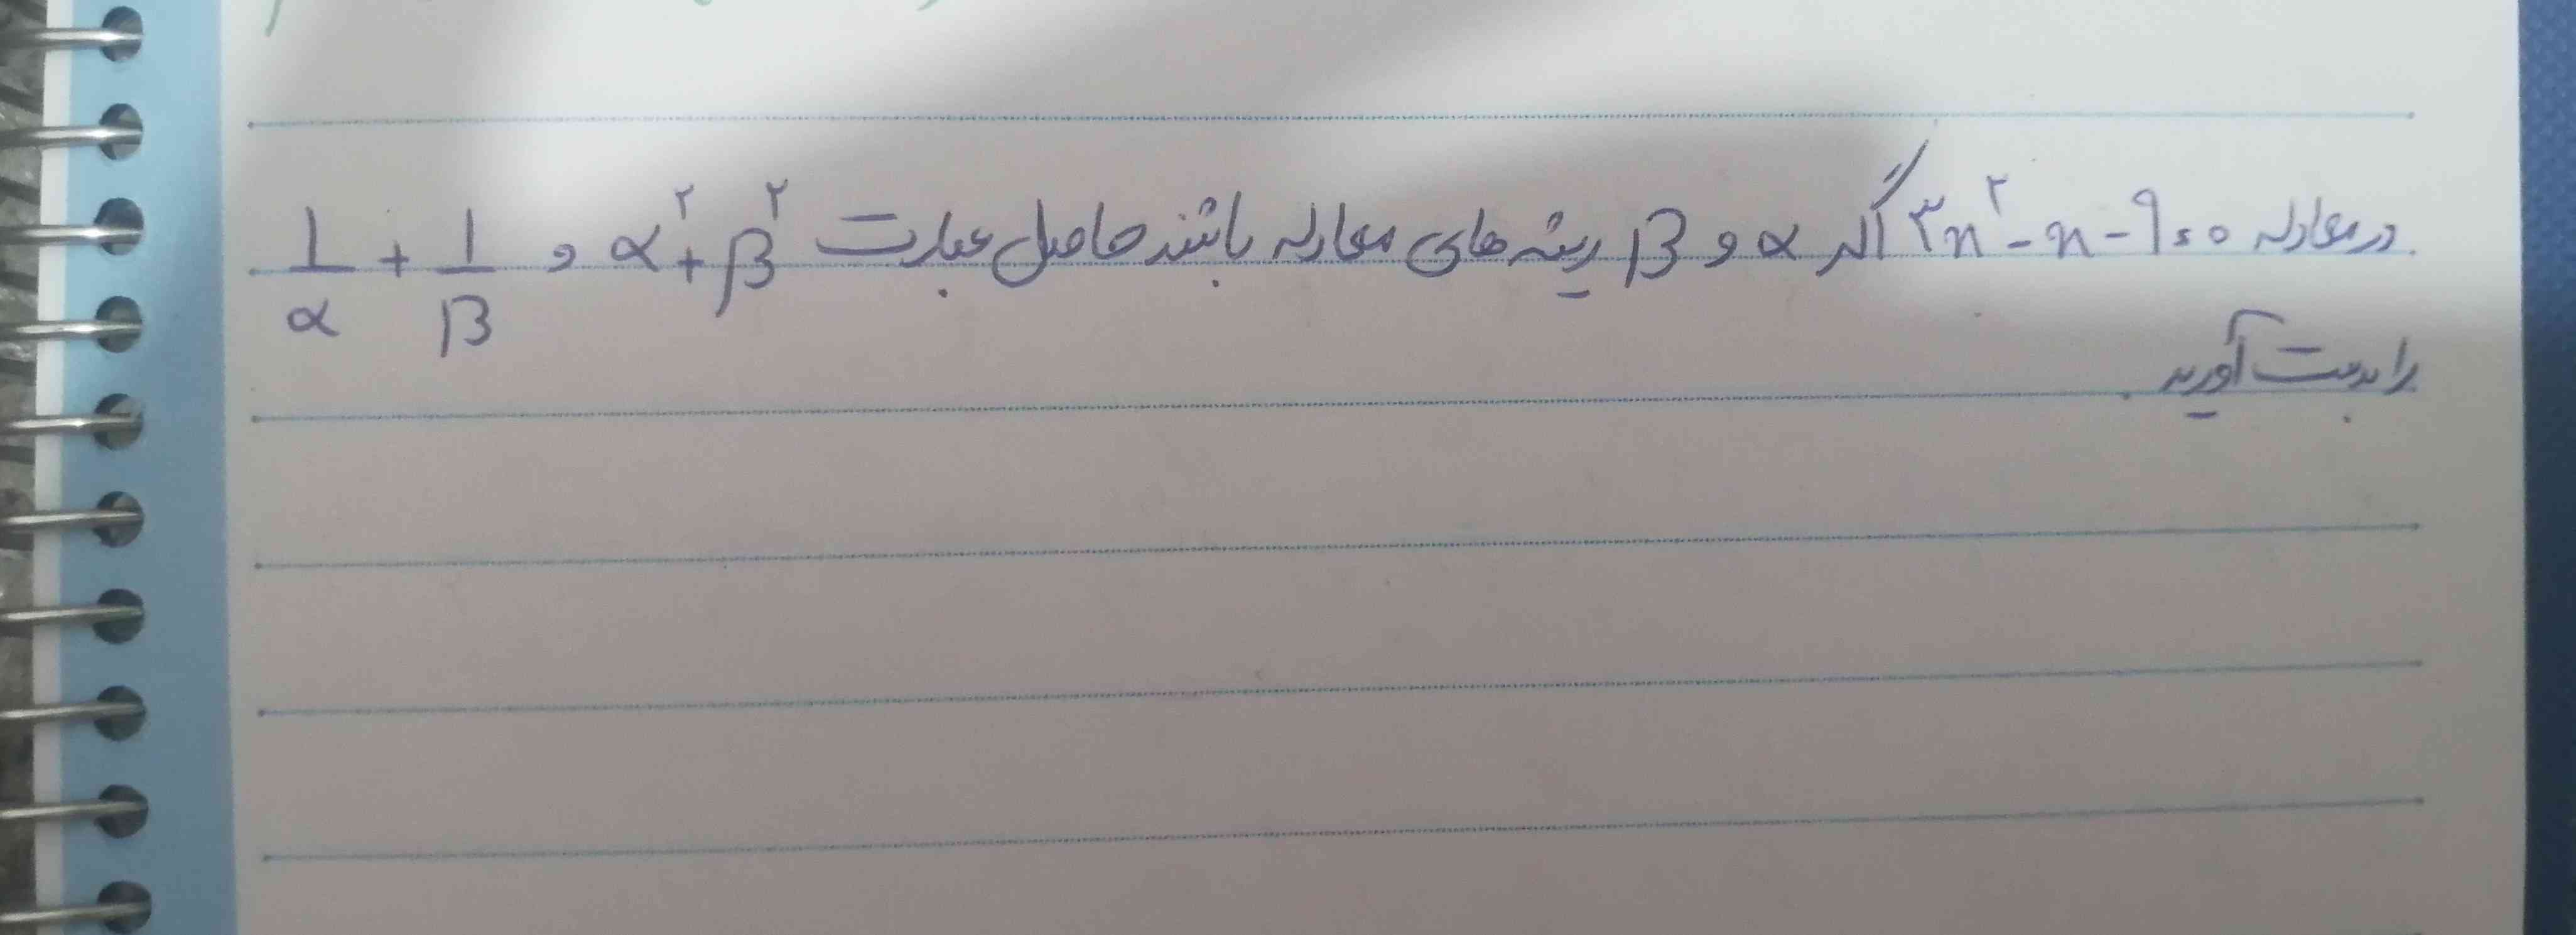 در معادله ۳x^۲ - x - ۹ = ۰ اگر α و β ریشه های معادله باشند حاصل عبارت α^۲ + β^۲ و 1/α + 1/β
را بدست آورید.